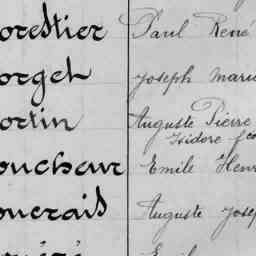 orestier Paul René
orget Joseph Mari
ortin Auguste Pierre
Isidore fcs
oucheur Emile Henr
ouerais Auguste Josep